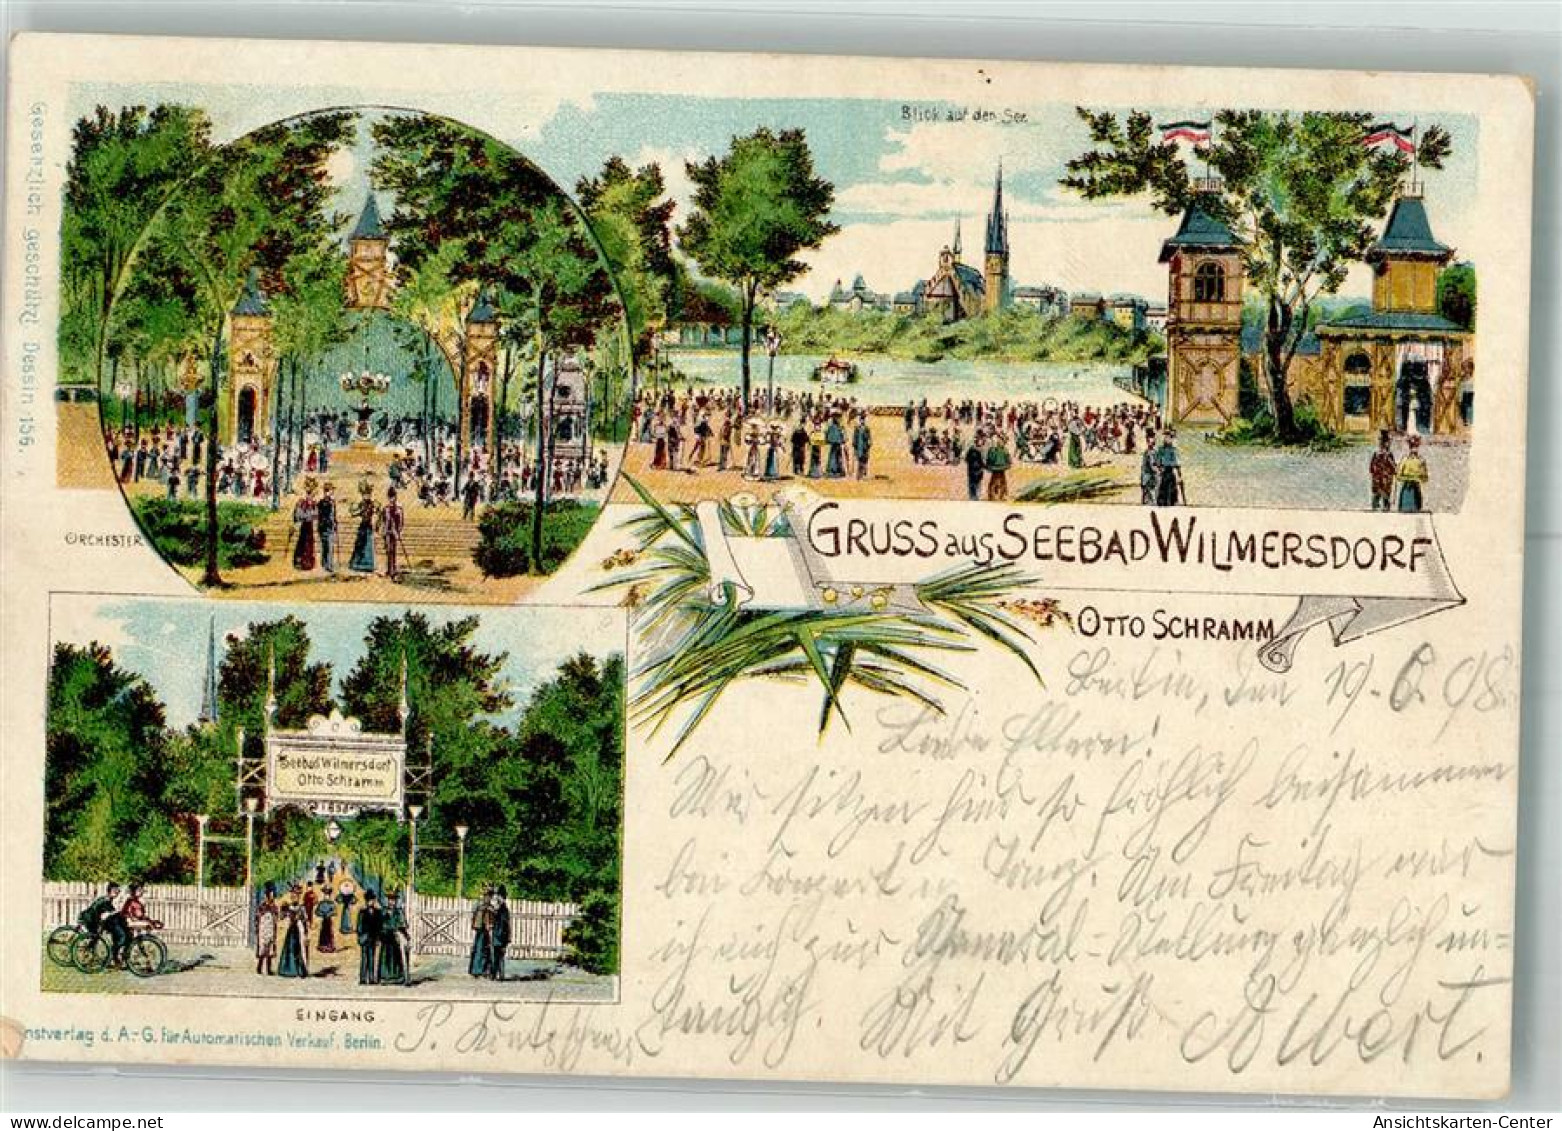 Gesetzlich geschützt Dessin 156.
Blick auf den See
ORCHESTER
GRUSS aus SEEBAD WILMERSDORF
OTTO SCHRAMM
Seebad Wilmersdorf
Otto Schramm
EINGANG
nstverlag d. A.-G. für Automatischen Verkauf, Berlin.
Berlin, den 19.6.98.
Liebe Eltern!
Wir sitzen hier so fröhlich beisammen
bei Konzert u Tanz. Am Freitag war
ich auch zur General-Stellung gänzlich un-
tauglich. Mit Gruß Albert.
P.
Ansichtskarten-Center